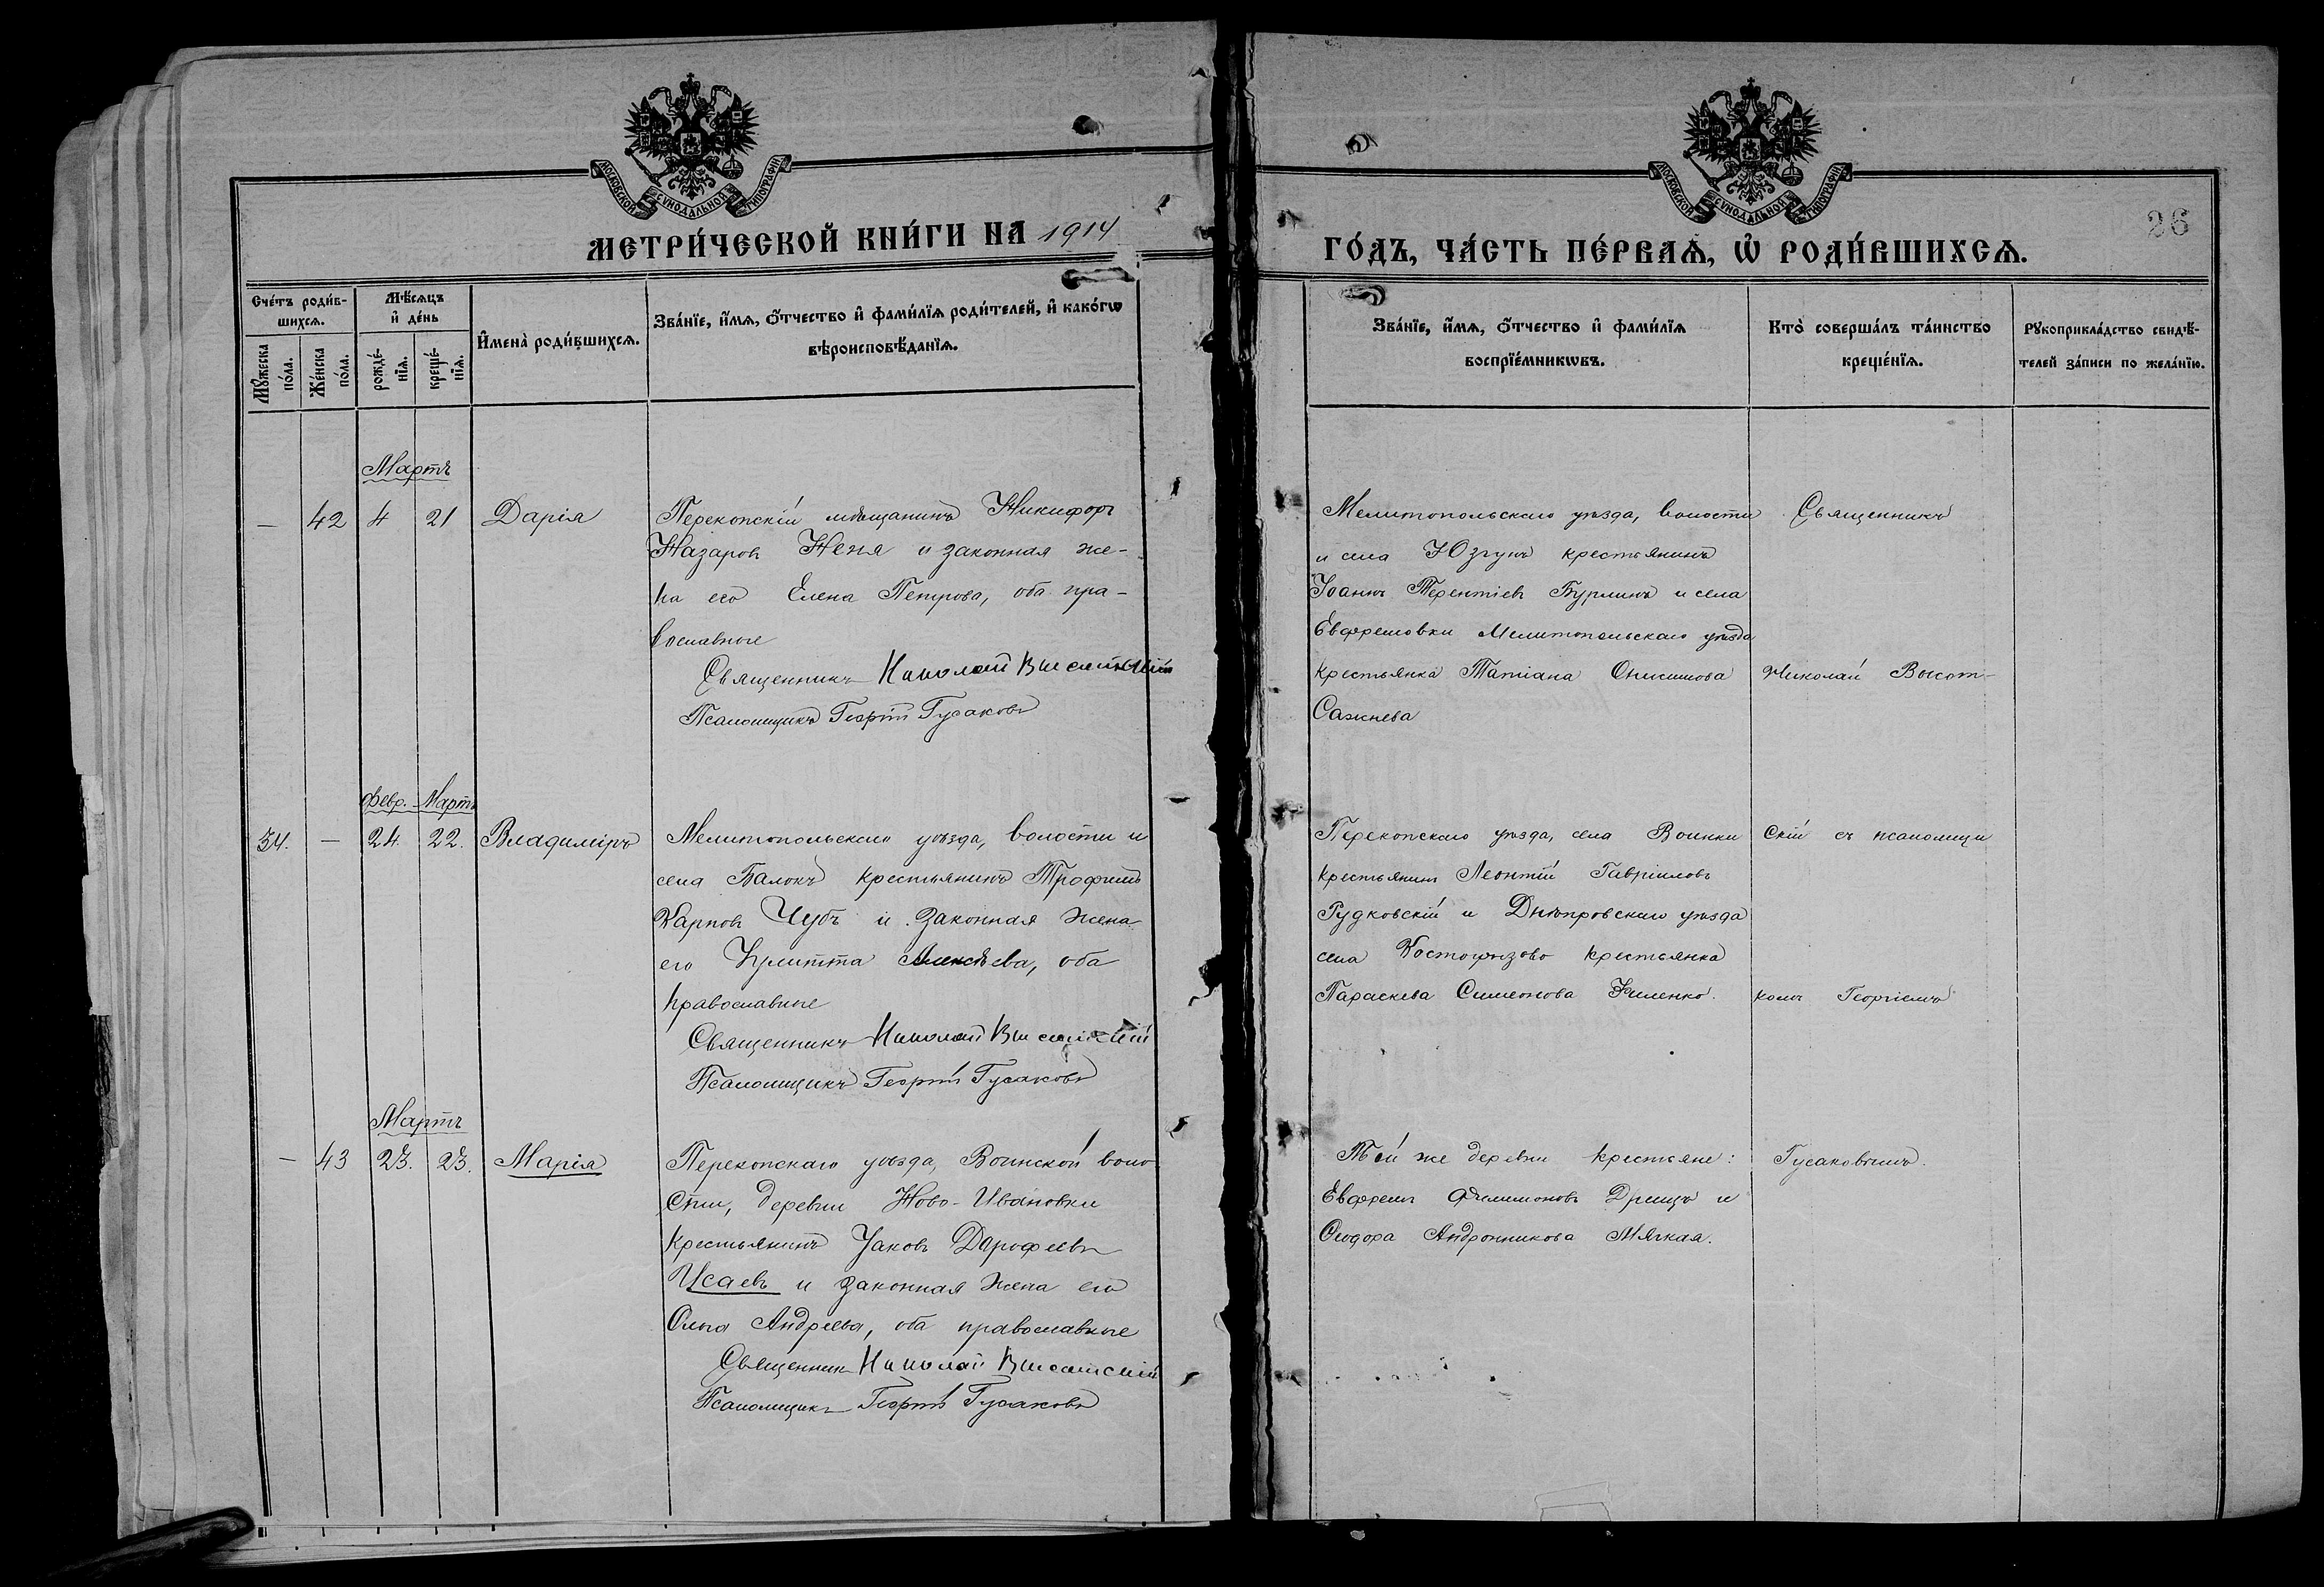 МОСКОВСКОЙ СУНОДАЛЬНОЙ ТИПОГРАФІИ
МЕТРИ́ЧЕСКОЙ КНИ́ГИ НА 1914
Сче́тъ роди́в-
шихсѧ.
Мѣ́сѧцъ
и҆ де́нь
Мꙋ́жеска
по́ла.
Же́нска
по́ла.
рожде́-
нїѧ.
креще́-
нїѧ.
И҆мена̀ роди́вшихсѧ.
Зва́нїе, и҆́мѧ, ѻ҆́тчество и҆ фами́лїѧ роди́телей, и҆ како́гѡ
вѣроисповѣ́данїѧ.
Мартъ
— 42 4 21 Дарія
Перекопскій мѣщанинъ Никифоръ
Назаровъ Неня и законная же-
на его Елена Петрова, оба пра-
вославные
Священникъ Николай Высотскій
Псаломщикъ Георгій Гусаковъ
Февр. Мартъ
34. — 24. 22. Владиміръ
Мелитопольскаго уѣзда, волости и
села Балокъ крестьянинъ Трофимъ
Карповъ Чубъ и законная жена
его Іулитта Алексѣева, оба
православные
Священникъ Николай Высотскій
Псаломщикъ Георгій Гусаковъ
Мартъ
— 43 23. 23. Марія
Перекопскаго уѣзда, Воинской воло
сти, деревни Ново-Ивановки
крестьянинъ Іаковъ Дарофеевъ
Исаевъ и законная жена его
Ольга Андреева, оба православные
Священникъ Николай Высотскій
Псаломщикъ Георгій Гусаковъ
МОСКОВСКОЙ СУНОДАЛЬНОЙ ТИПОГРАФІИ
26
ГО́ДЪ, ЧА́СТЬ ПЕ́РВАѦ, Ѡ҆ РОДИ́ВШИХСѦ.
Зва́нїе, и҆́мѧ, ѻ҆́тчество и҆ фами́лїѧ
воспрїе́мникѡвъ.
Кто̀ соверша́лъ та́инство
креще́нїѧ.
Рꙋкоприкла́дство свидѣ́-
телей за́писи по жела́нїю.
Мелитопольскаго уѣзда, волости
и села Юзкуя крестьянинъ
Іоаннъ Терентіевъ Бурлинъ и села
Ефремовки Мелитопольскаго уѣзда
крестьянка Татіана Онисимова
Сажнева
Перекопскаго уѣзда, села Воинки
крестьянинъ Леонтій Гавріиловъ
Рудковскій и Днѣпровскаго уѣзда
села Костогрызово крестьянка
Параскева Симеонова
Той же деревни крестьяне:
Евфремъ Филимоновъ Дрищъ и
Ѳеодора Андронникова Мягкая.
Священникъ
Николай Высот-
скій съ псаломщи
комъ Георгіемъ
Гусаковымъ.